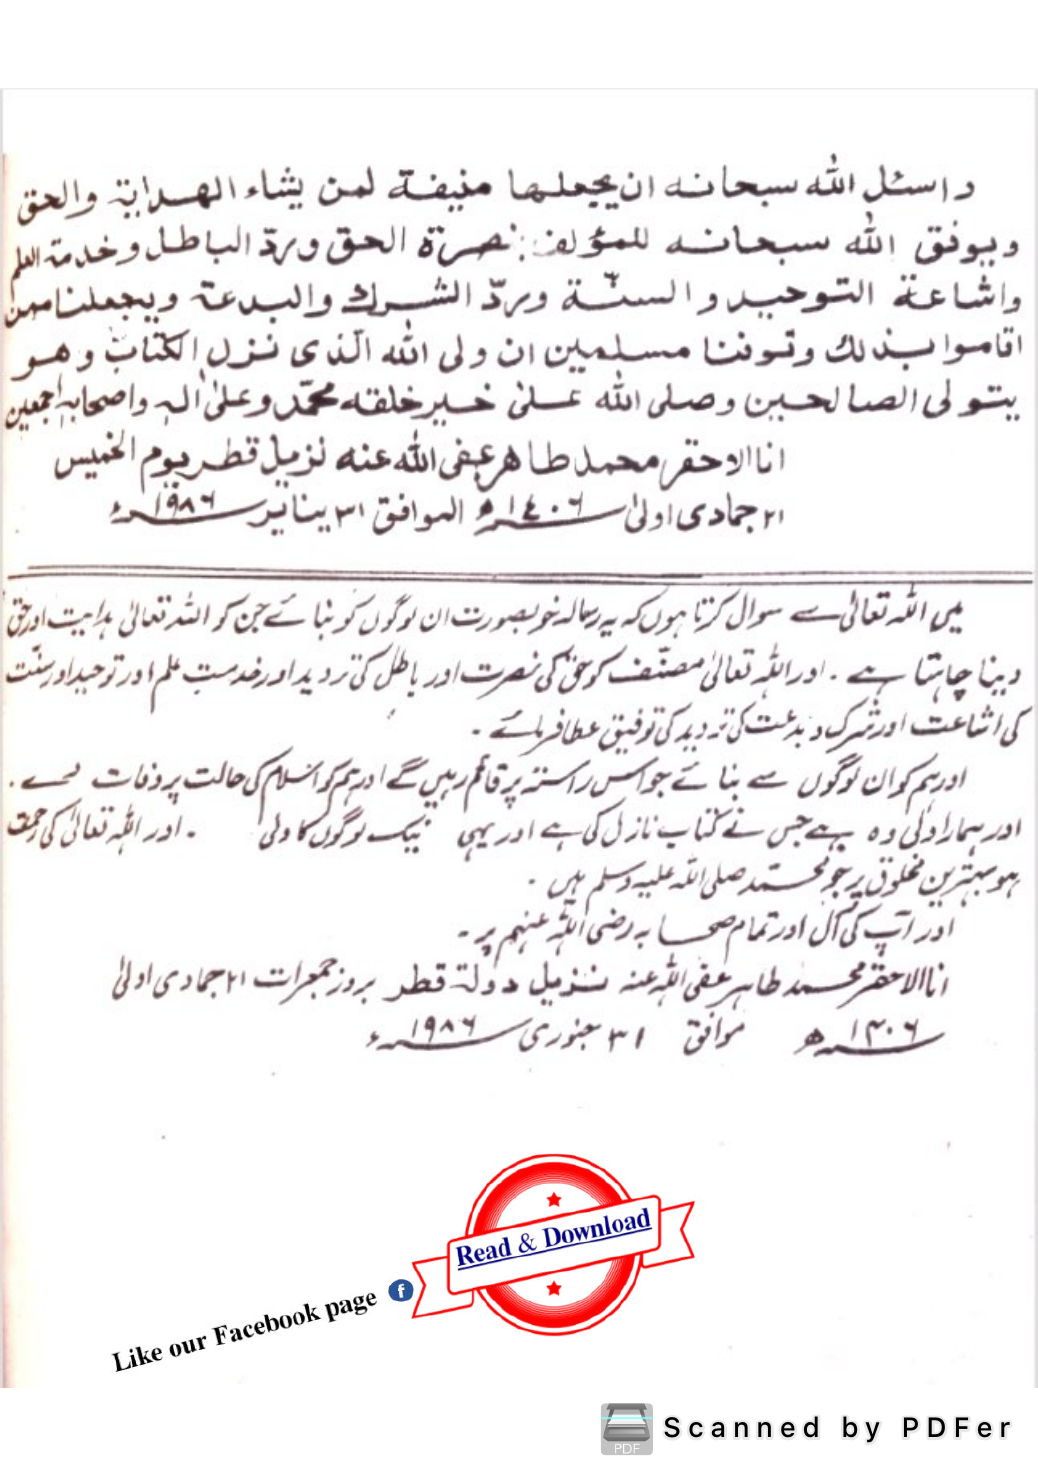 واسئل الله سبحانه ان يجعلها منيفة لمن يشاء الهداية والحق
ويوفق الله سبحانه للمؤلف نصرة الحق وردّ الباطل وخدمة العلم
واشاعة التوحيد والسنّة وردّ الشرك والبدعة ويجعلنا ممن
اقاموا بذلك وتوفنا مسلمين ان ولى الله الّذى نزل الكتاب وهو
يتولى الصالحين وصلى الله على خير خلقه محمّد وعلىٰ اٰلہٖ واصحابہٖ اجمعين
انا الاحقر محمد طاهر عفى الله عنه نزيل قطر يوم الخميس
٢١ جمادى اولىٰ ١٤٠٦ھ الموافق ٣١ يناير ١٩٨٦ء
میں اللہ تعالیٰ سے سوال کرتا ہوں کہ یہ رسالہ خوبصورت ان لوگوں کو بنائے جن کو اللہ تعالیٰ ہدایت اور حق
دینا چاہتا ہے ۔ اور اللہ تعالیٰ مصنّف کو حق کی نصرت اور باطل کی تردید اور خدمتِ علم اور توحید اور سنّت
کی اشاعت اور شرک و بدعت کی تردید کی توفیق عطا فرمائے ۔
اور ہم کو ان لوگوں سے بنائے جو اس راستہ پر قائم رہیں گے اور ہم کو اسلام کی حالت پر وفات دے ۔
اور ہمارا ولی وہ ہے جس نے کتاب نازل کی ہے اور یہی نیک لوگوں کا ولی ۔ اور اللہ تعالیٰ کی رحمت
ہو بہترین مخلوق پر جو محمّد صلی اللہ علیہ وسلم ہیں ۔
اور آپ کی آل اور تمام صحابہ رضی اللہ عنہم پر ۔
انا الاحقر محمد طاہر عفی اللہ عنہ نزیل دولة قطر بروز جمعرات ٢١ جمادی اولیٰ
١٤٠٦ھ موافق ٣١ جنوری ١٩٨٦ء
Read & Download
Like our Facebook page
Scanned by PDFer
PDF